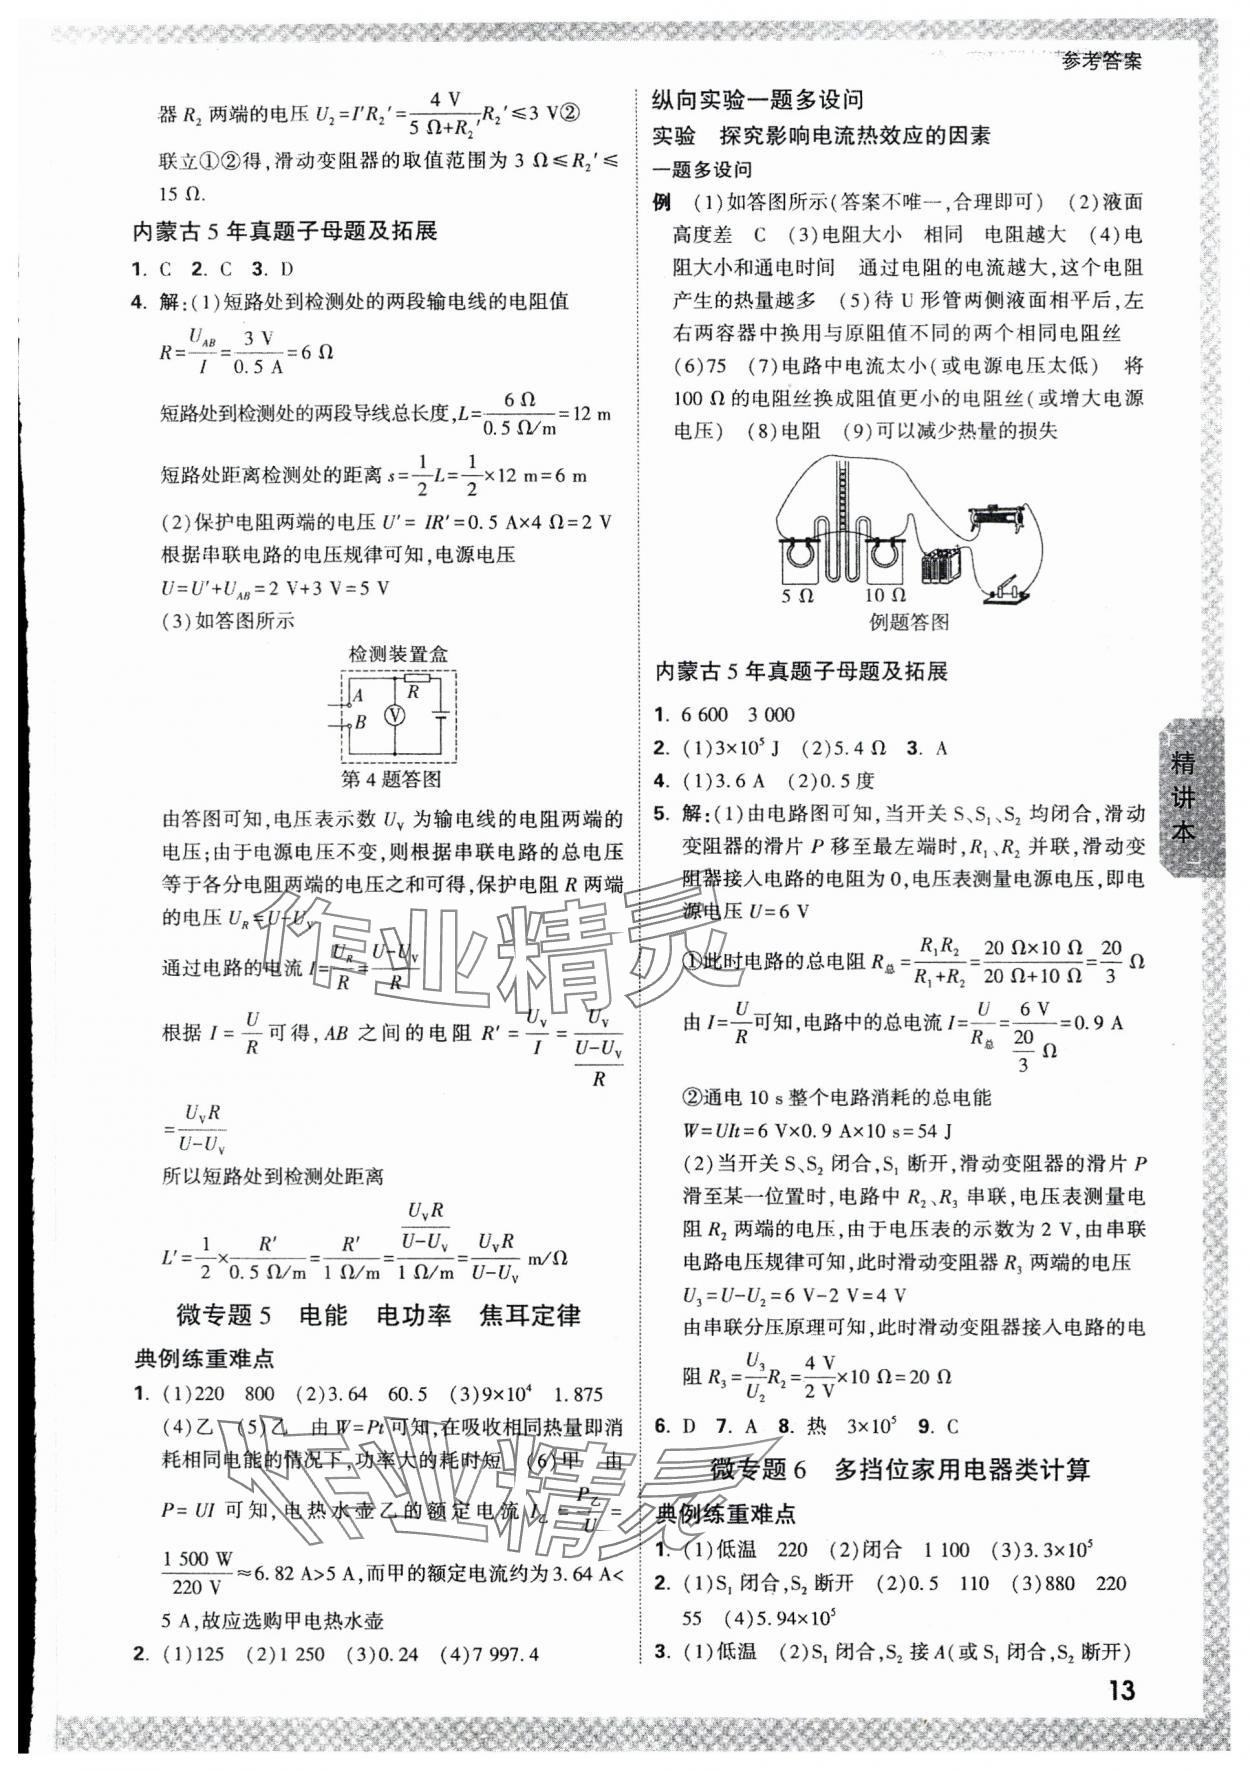 参考答案
器 R₂ 两端的电压 U₂=I′R₂′=4 V/(5 Ω+R₂′)R₂′≤3 V②
联立①②得,滑动变阻器的取值范围为 3 Ω≤R₂′≤
15 Ω.
内蒙古 5 年真题子母题及拓展
1. C 2. C 3. D
4. 解:(1)短路处到检测处的两段输电线的电阻值
R=U_AB/I=3 V/0.5 A=6 Ω
短路处到检测处的两段导线总长度,L=6 Ω/(0.5 Ω/m)=12 m
短路处距离检测处的距离 s=1/2L=1/2×12 m=6 m
(2)保护电阻两端的电压 U′= IR′=0.5 A×4 Ω=2 V
根据串联电路的电压规律可知,电源电压
U=U′+U_AB=2 V+3 V=5 V
(3)如答图所示
检测装置盒
A
R
B
V
第 4 题答图
由答图可知,电压表示数 U_V 为输电线的电阻两端的
电压;由于电源电压不变,则根据串联电路的总电压
等于各分电阻两端的电压之和可得,保护电阻 R 两端
的电压 U_R=U-U_V
通过电路的电流 I=U_R/R=(U-U_V)/R
根据 I=U/R可得,AB 之间的电阻 R′=U_V/I=U_V/((U-U_V)/R)
=U_VR/(U-U_V)
所以短路处到检测处距离
L′=1/2×R′/(0.5 Ω/m)=R′/(1 Ω/m)=(U_VR/(U-U_V))/(1 Ω/m)=U_VR/(U-U_V) m/Ω
微专题 5 电能 电功率 焦耳定律
典例练重难点
1. (1)220 800 (2)3.64 60.5 (3)9×10⁴ 1.875
(4)乙 (5)乙 由 W=Pt可知,在吸收相同热量即消
耗相同电能的情况下,功率大的耗时短 (6)甲 由
P=UI 可知,电热水壶乙的额定电流 I_乙=P_乙/U=
1 500 W/220 V≈6.82 A>5 A,而甲的额定电流约为3.64 A<
5 A,故应选购甲电热水壶
2. (1)125 (2)1 250 (3)0.24 (4)7 997.4
纵向实验一题多设问
实验 探究影响电流热效应的因素
一题多设问
例 (1)如答图所示(答案不唯一,合理即可) (2)液面
高度差 C (3)电阻大小 相同 电阻越大 (4)电
阻大小和通电时间 通过电阻的电流越大,这个电阻
产生的热量越多 (5)待 U 形管两侧液面相平后,左
右两容器中换用与原阻值不同的两个相同电阻丝
(6)75 (7)电路中电流太小(或电源电压太低) 将
100 Ω的电阻丝换成阻值更小的电阻丝(或增大电源
电压) (8)电阻 (9)可以减少热量的损失
5 Ω 10 Ω
例题答图
内蒙古 5 年真题子母题及拓展
1. 6 600 3 000
2. (1)3×10⁵ J (2)5.4 Ω 3. A
4. (1)3.6 A (2)0.5 度
5. 解:(1)由电路图可知,当开关 S、S₁、S₂ 均闭合,滑动
变阻器的滑片 P 移至最左端时,R₁、R₂ 并联,滑动变
阻器接入电路的电阻为 0,电压表测量电源电压,即电
源电压 U=6 V
①此时电路的总电阻 R_总=R₁R₂/(R₁+R₂)=(20 Ω×10 Ω)/(20 Ω+10 Ω)=20/3 Ω
由 I=U/R可知,电路中的总电流 I=U/R_总=6 V/(20/3 Ω)=0.9 A
②通电 10 s 整个电路消耗的总电能
W=UIt=6 V×0.9 A×10 s=54 J
(2)当开关 S、S₂ 闭合,S₁ 断开,滑动变阻器的滑片 P
滑至某一位置时,电路中 R₂、R₃ 串联,电压表测量电
阻 R₂ 两端的电压,由于电压表的示数为 2 V,由串联
电路电压规律可知,此时滑动变阻器 R₃ 两端的电压
U₃=U-U₂=6 V-2 V=4 V
由串联分压原理可知,此时滑动变阻器接入电路的电
阻 R₃=U₃/U₂R₂=4 V/2 V×10 Ω=20 Ω
6. D 7. A 8. 热 3×10⁵ 9. C
微专题 6 多挡位家用电器类计算
典例练重难点
1. (1)低温 220 (2)闭合 1 100 (3)3.3×10⁵
2. (1)S₁ 闭合,S₂ 断开 (2)0.5 110 (3)880 220
55 (4)5.94×10⁵
3. (1)低温 (2)S₁ 闭合,S₂ 接 A(或 S₁ 闭合,S₂ 断开)
精讲本
13
作业精灵
作业精灵